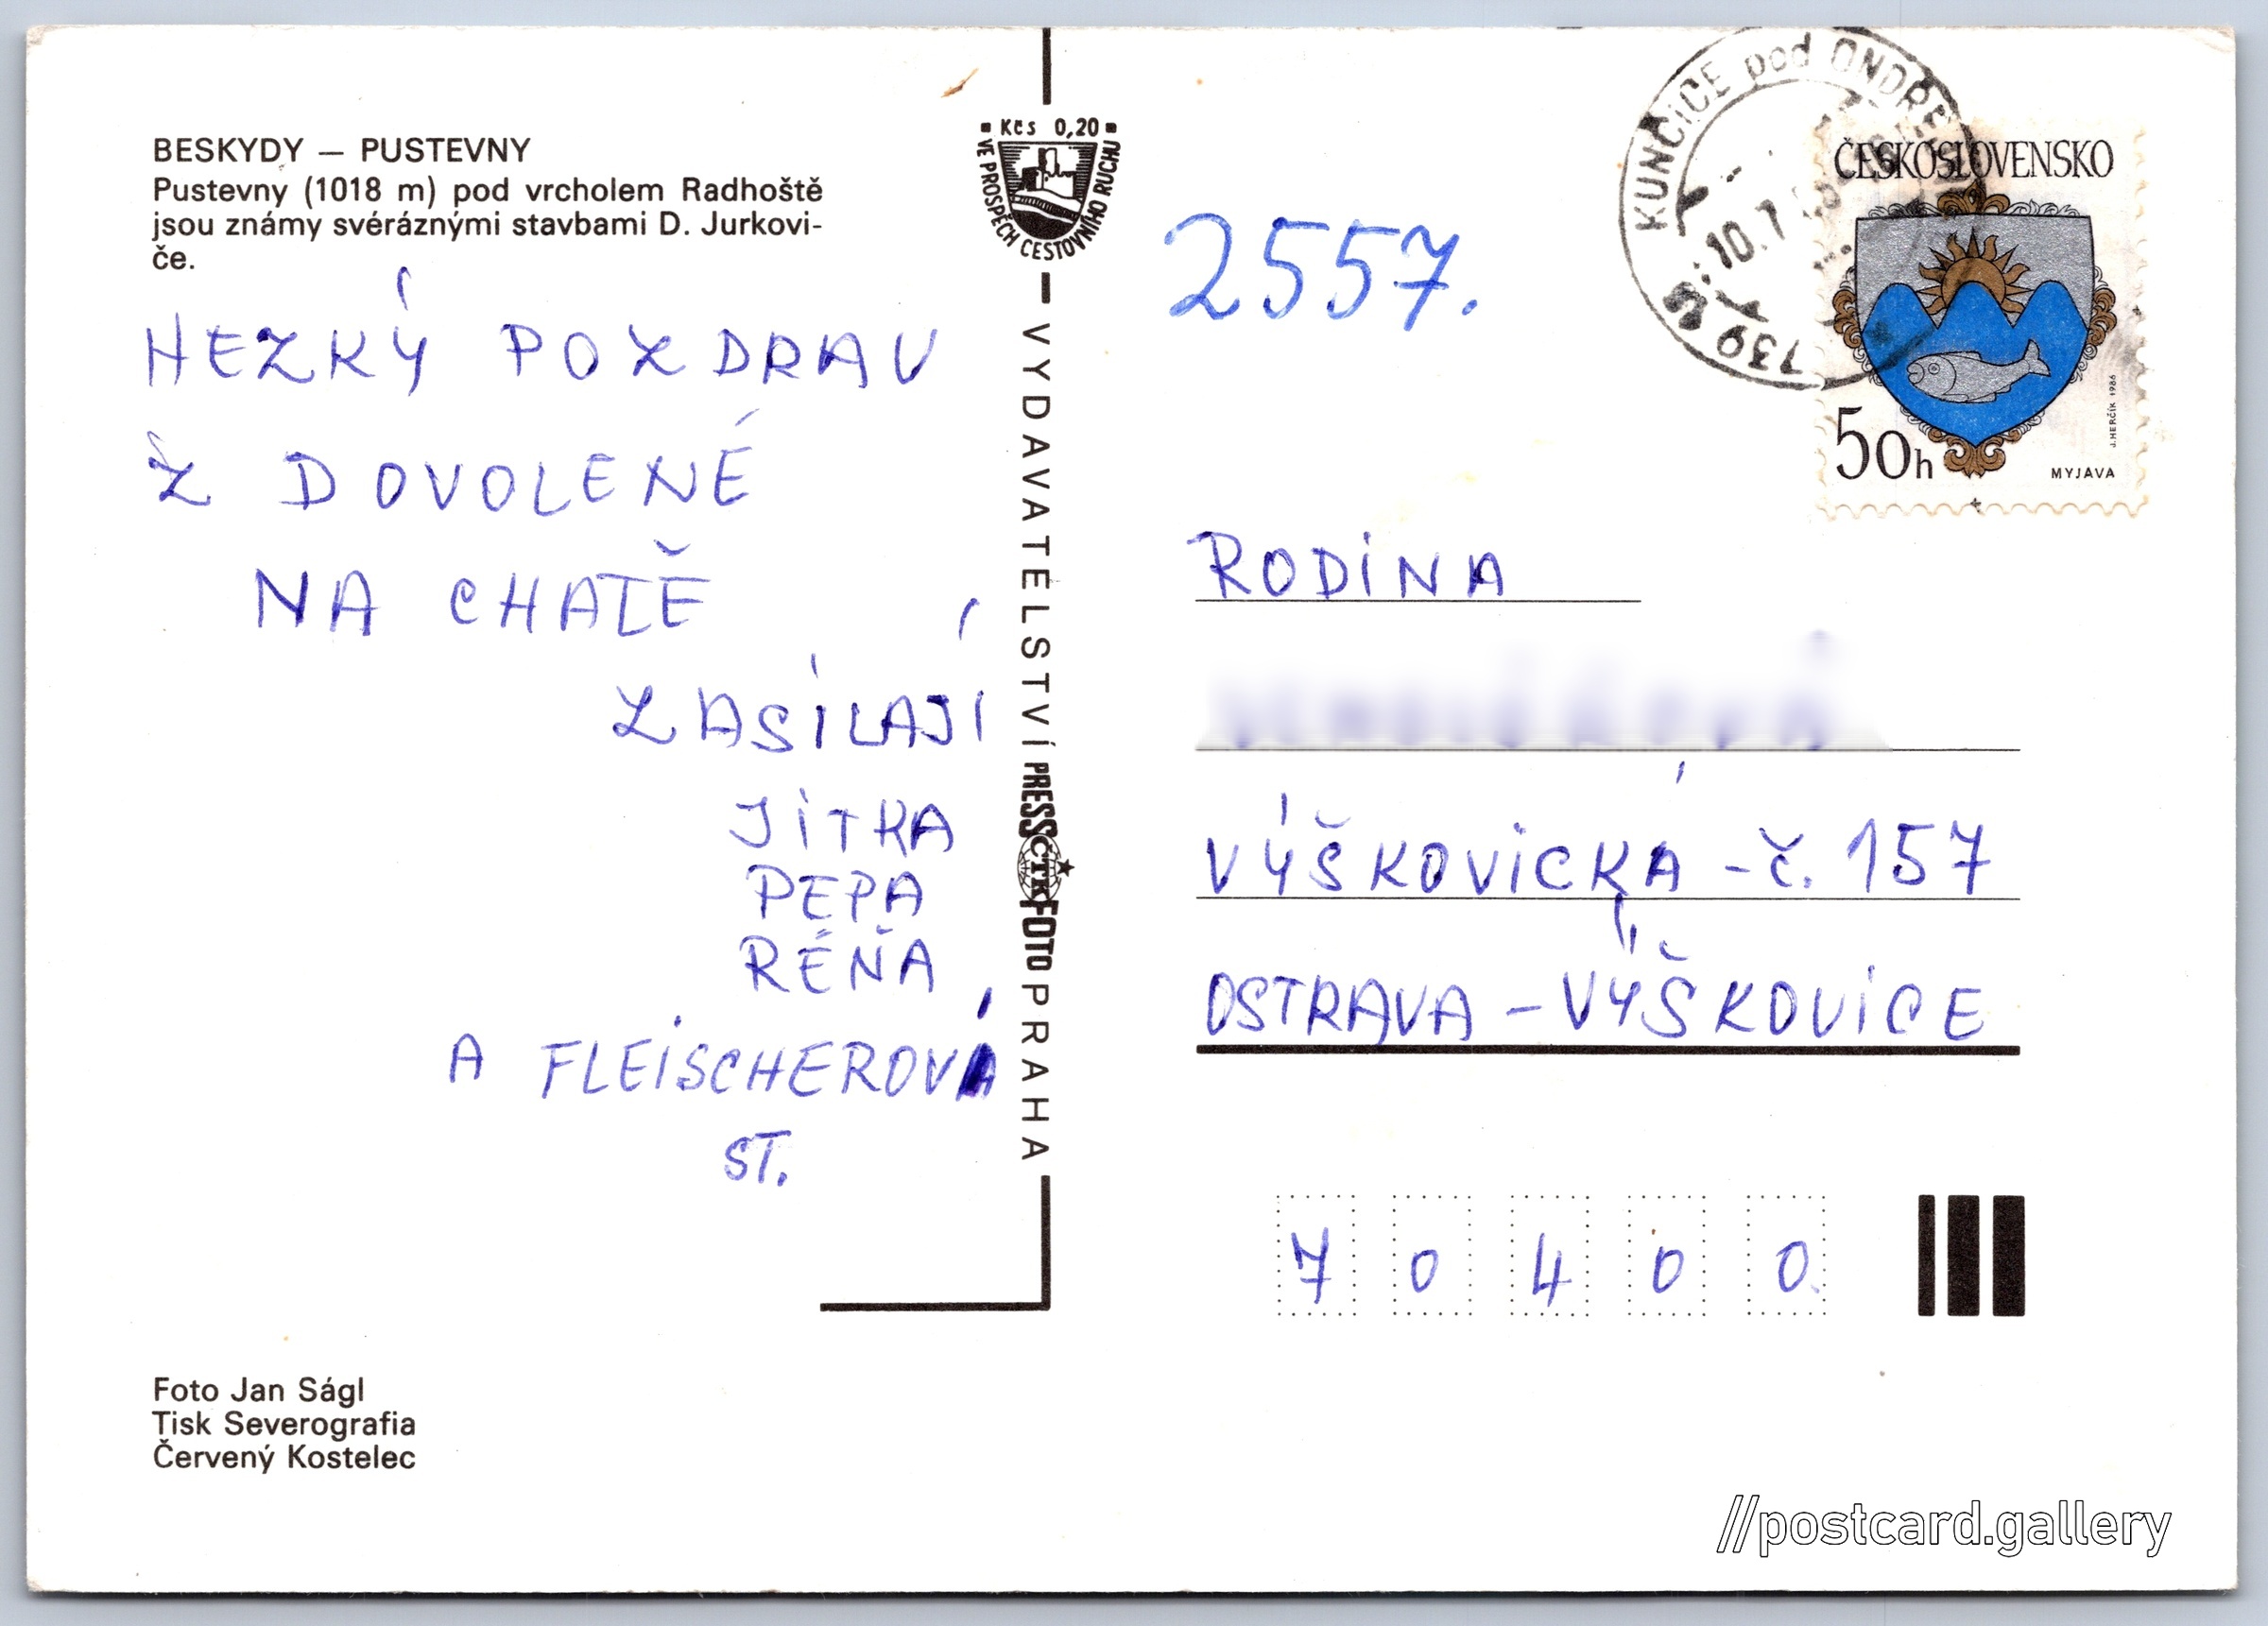 BESKYDY — PUSTEVNY
Pustevny (1018 m) pod vrcholem Radhoště
jsou známy svéráznými stavbami D. Jurkovi-
če.
HEZKÝ POZDRAV
Z DOVOLENÉ
NA CHATĚ
ZASÍLAJÍ
JITKA
PEPA
RÉŇA
A FLEISCHEROVÁ
ST.
Foto Jan Ságl
Tisk Severografia
Červený Kostelec
Kčs 0,20
VE PROSPĚCH CESTOVNÍHO RUCHU
VYDAVATELSTVÍ PRESSFOTO PRAHA
ČTK
2557.
KUNČICE pod ONDŘ
10.7
739
ČESKOSLOVENSKO
50h
MYJAVA
J. HERČÍK 1986
RODINA
VÝŠKOVICKÁ - č. 157
OSTRAVA - VÝŠKOVICE
7 0 4 0 0
//postcard.gallery